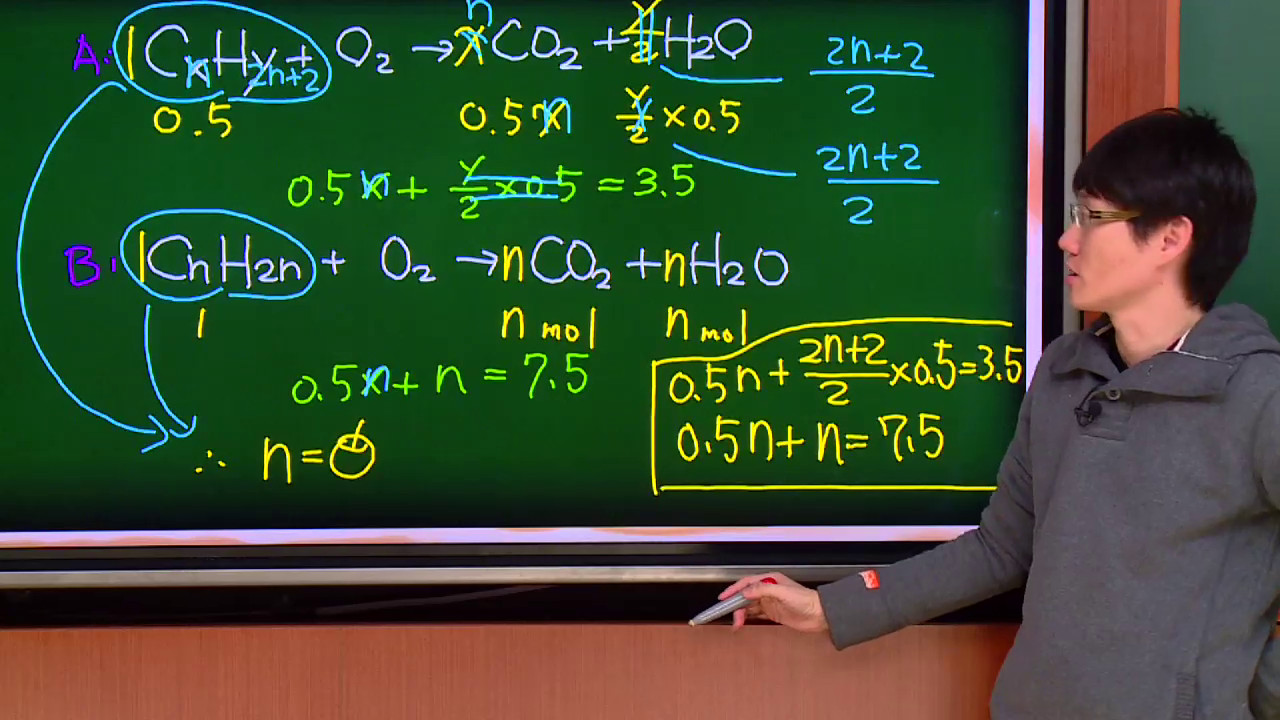 A: 1CnHy 2n+2 + O2 → x n CO2 + y/2 H2O 2n+2/2
0.5 0.5x n y/2 × 0.5 2n+2/2
0.5n + y/2 × 0.5 = 3.5
B: 1CnH2n + O2 → nCO2 + nH2O
1 n mol n mol
0.5n + n = 7.5
0.5n + 2n+2/2 × 0.5 = 3.5
0.5n + n = 7.5
∴ n =